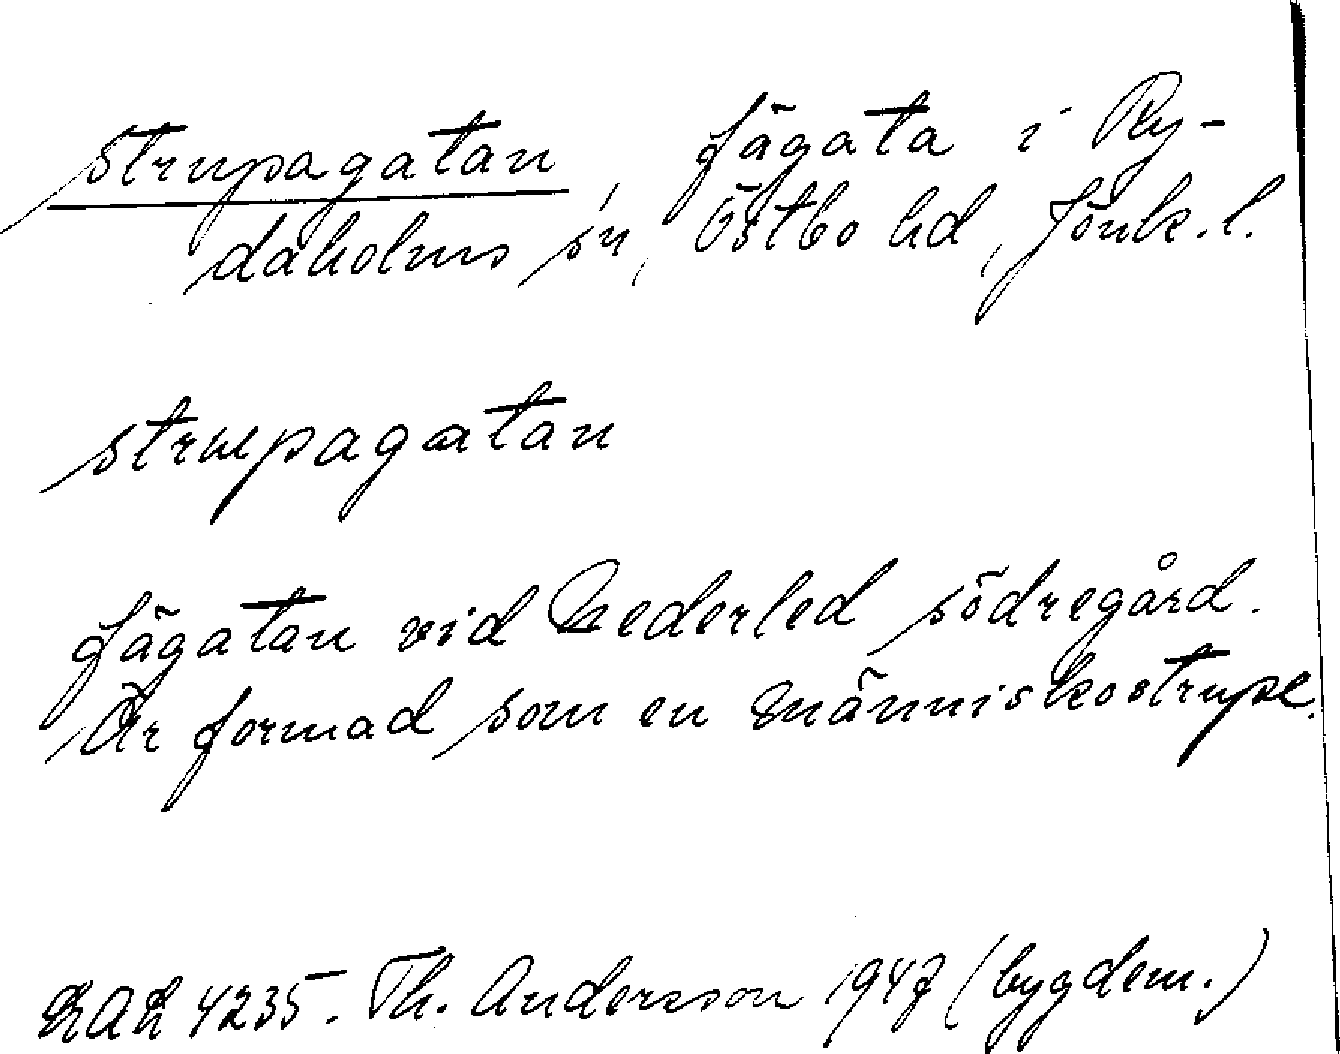 Strupagatan, fägata i Ry-
daholms sn, Östbo hd, Jönk. l.
strupagatan
fägatan vid Nederled södregård.
Är formad som en människostrupe.
LAL 4235. Th. Andersson 1947 (bygdem.)